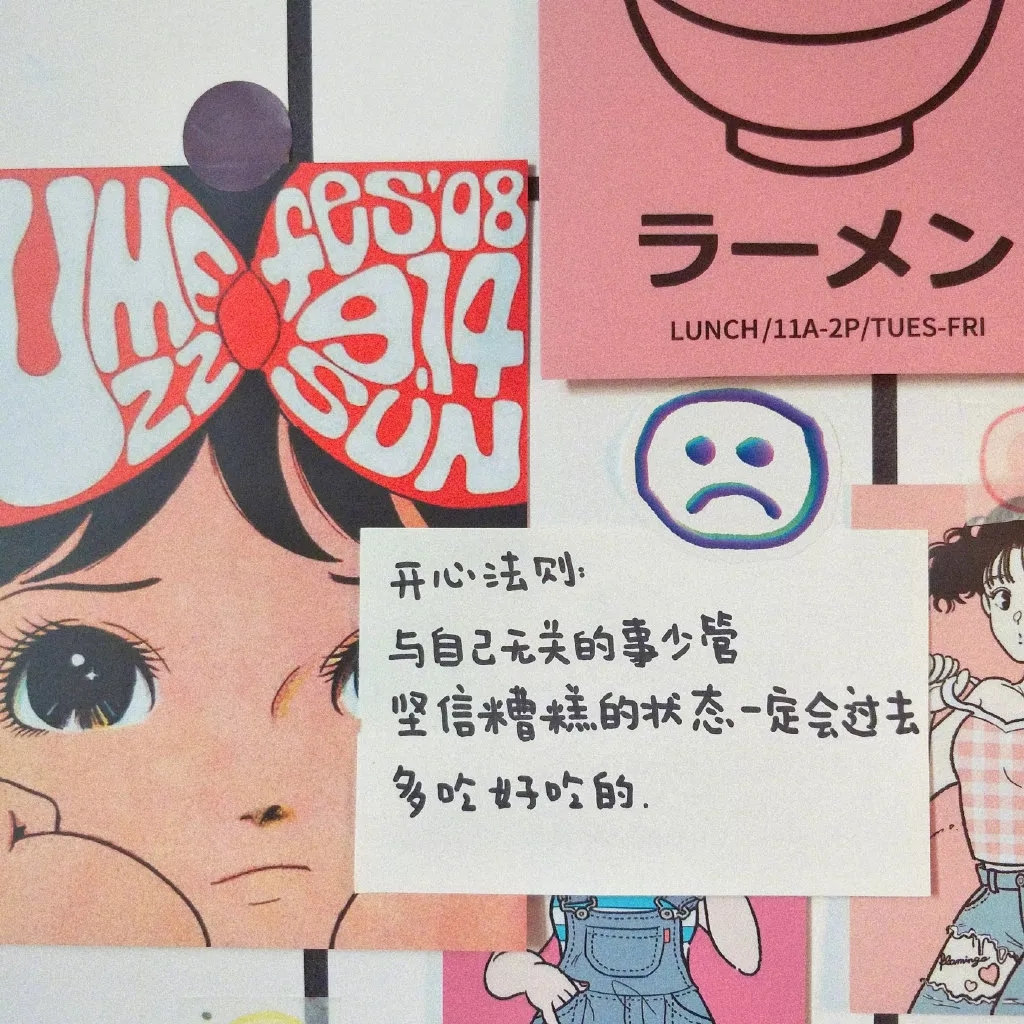 UMEZZ
fes'08
9.14
SUN
ラーメン
LUNCH/11A-2P/TUES-FRI
开心法则:
与自己无关的事少管
坚信糟糕的状态一定会过去
多吃好吃的.
flamingo